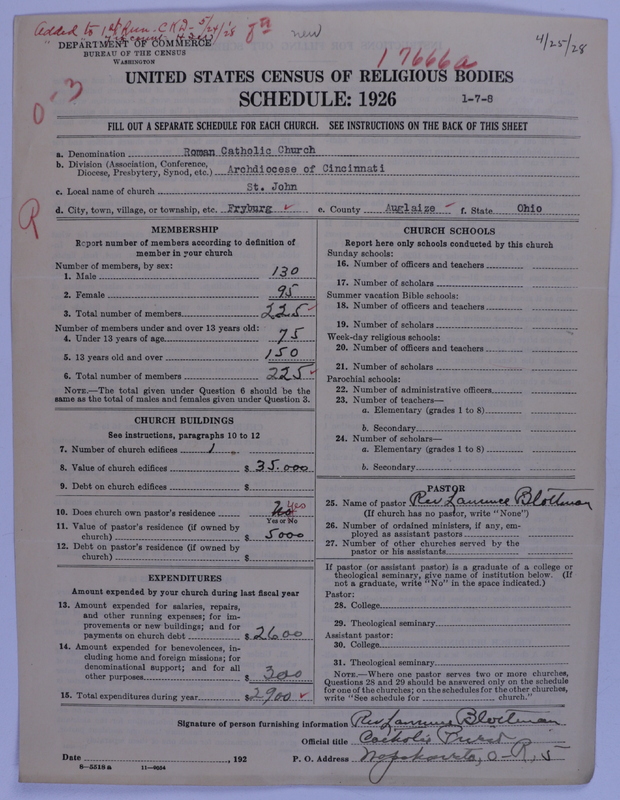 Added to 1st Run. C.K.D- 5/24/'28
new
4/25/28
DEPARTMENT OF COMMERCE
BUREAU OF THE CENSUS
WASHINGTON
17666a
UNITED STATES CENSUS OF RELIGIOUS BODIES
SCHEDULE: 1926
1-7-8
0-3
FILL OUT A SEPARATE SCHEDULE FOR EACH CHURCH. SEE INSTRUCTIONS ON THE BACK OF THIS SHEET
a. Denomination Roman Catholic Church
b. Division (Association, Conference, Diocese, Presbytery, Synod, etc.) Archdiocese of Cincinnati
c. Local name of church St. John
d. City, town, village, or township, etc. Fryburg ✓ e. County Auglaize f. State Ohio
R
MEMBERSHIP
Report number of members according to definition of
member in your church
Number of members, by sex:
1. Male 130
2. Female 95
3. Total number of members 225 ✓
Number of members under and over 13 years old:
4. Under 13 years of age 75
5. 13 years old and over 150
6. Total number of members 225 ✓
NOTE.—The total given under Question 6 should be the
same as the total of males and females given under Question 3.
CHURCH BUILDINGS
See instructions, paragraphs 10 to 12
7. Number of church edifices 1
8. Value of church edifices $ 35.000
9. Debt on church edifices $
10. Does church own pastor's residence No yes
Yes or No
11. Value of pastor's residence (if owned by
church) $ 5000
12. Debt on pastor's residence (if owned by
church) $
EXPENDITURES
Amount expended by your church during last fiscal year
13. Amount expended for salaries, repairs,
and other running expenses; for im-
provements or new buildings; and for
payments on church debt $ 2600
14. Amount expended for benevolences, in-
cluding home and foreign missions; for
denominational support; and for all
other purposes $ 300
15. Total expenditures during year $ 2900 ✓
CHURCH SCHOOLS
Report here only schools conducted by this church
Sunday schools:
16. Number of officers and teachers
17. Number of scholars
Summer vacation Bible schools:
18. Number of officers and teachers
19. Number of scholars
Week-day religious schools:
20. Number of officers and teachers
21. Number of scholars
Parochial schools:
22. Number of administrative officers
23. Number of teachers—
a. Elementary (grades 1 to 8)
b. Secondary
24. Number of scholars—
a. Elementary (grades 1 to 8)
b. Secondary
PASTOR
25. Name of pastor Rev Laurence Blottman
(If church has no pastor, write "None")
26. Number of ordained ministers, if any, em-
ployed as assistant pastors
27. Number of other churches served by the
pastor or his assistants
If pastor (or assistant pastor) is a graduate of a college or
theological seminary, give name of institution below. (If
not a graduate, write "No" in the space indicated.)
Pastor:
28. College
29. Theological seminary
Assistant pastor:
30. College
31. Theological seminary
NOTE.—Where one pastor serves two or more churches,
Questions 28 and 29 should be answered only on the schedule
for one of the churches; on the schedules for the other churches,
write "See schedule for church."
Signature of person furnishing information Rev Laurence Blottman
Official title Catholic Priest
Date , 192 P. O. Address Wapakoneta, O- R, 5
8—5518a 11—9554